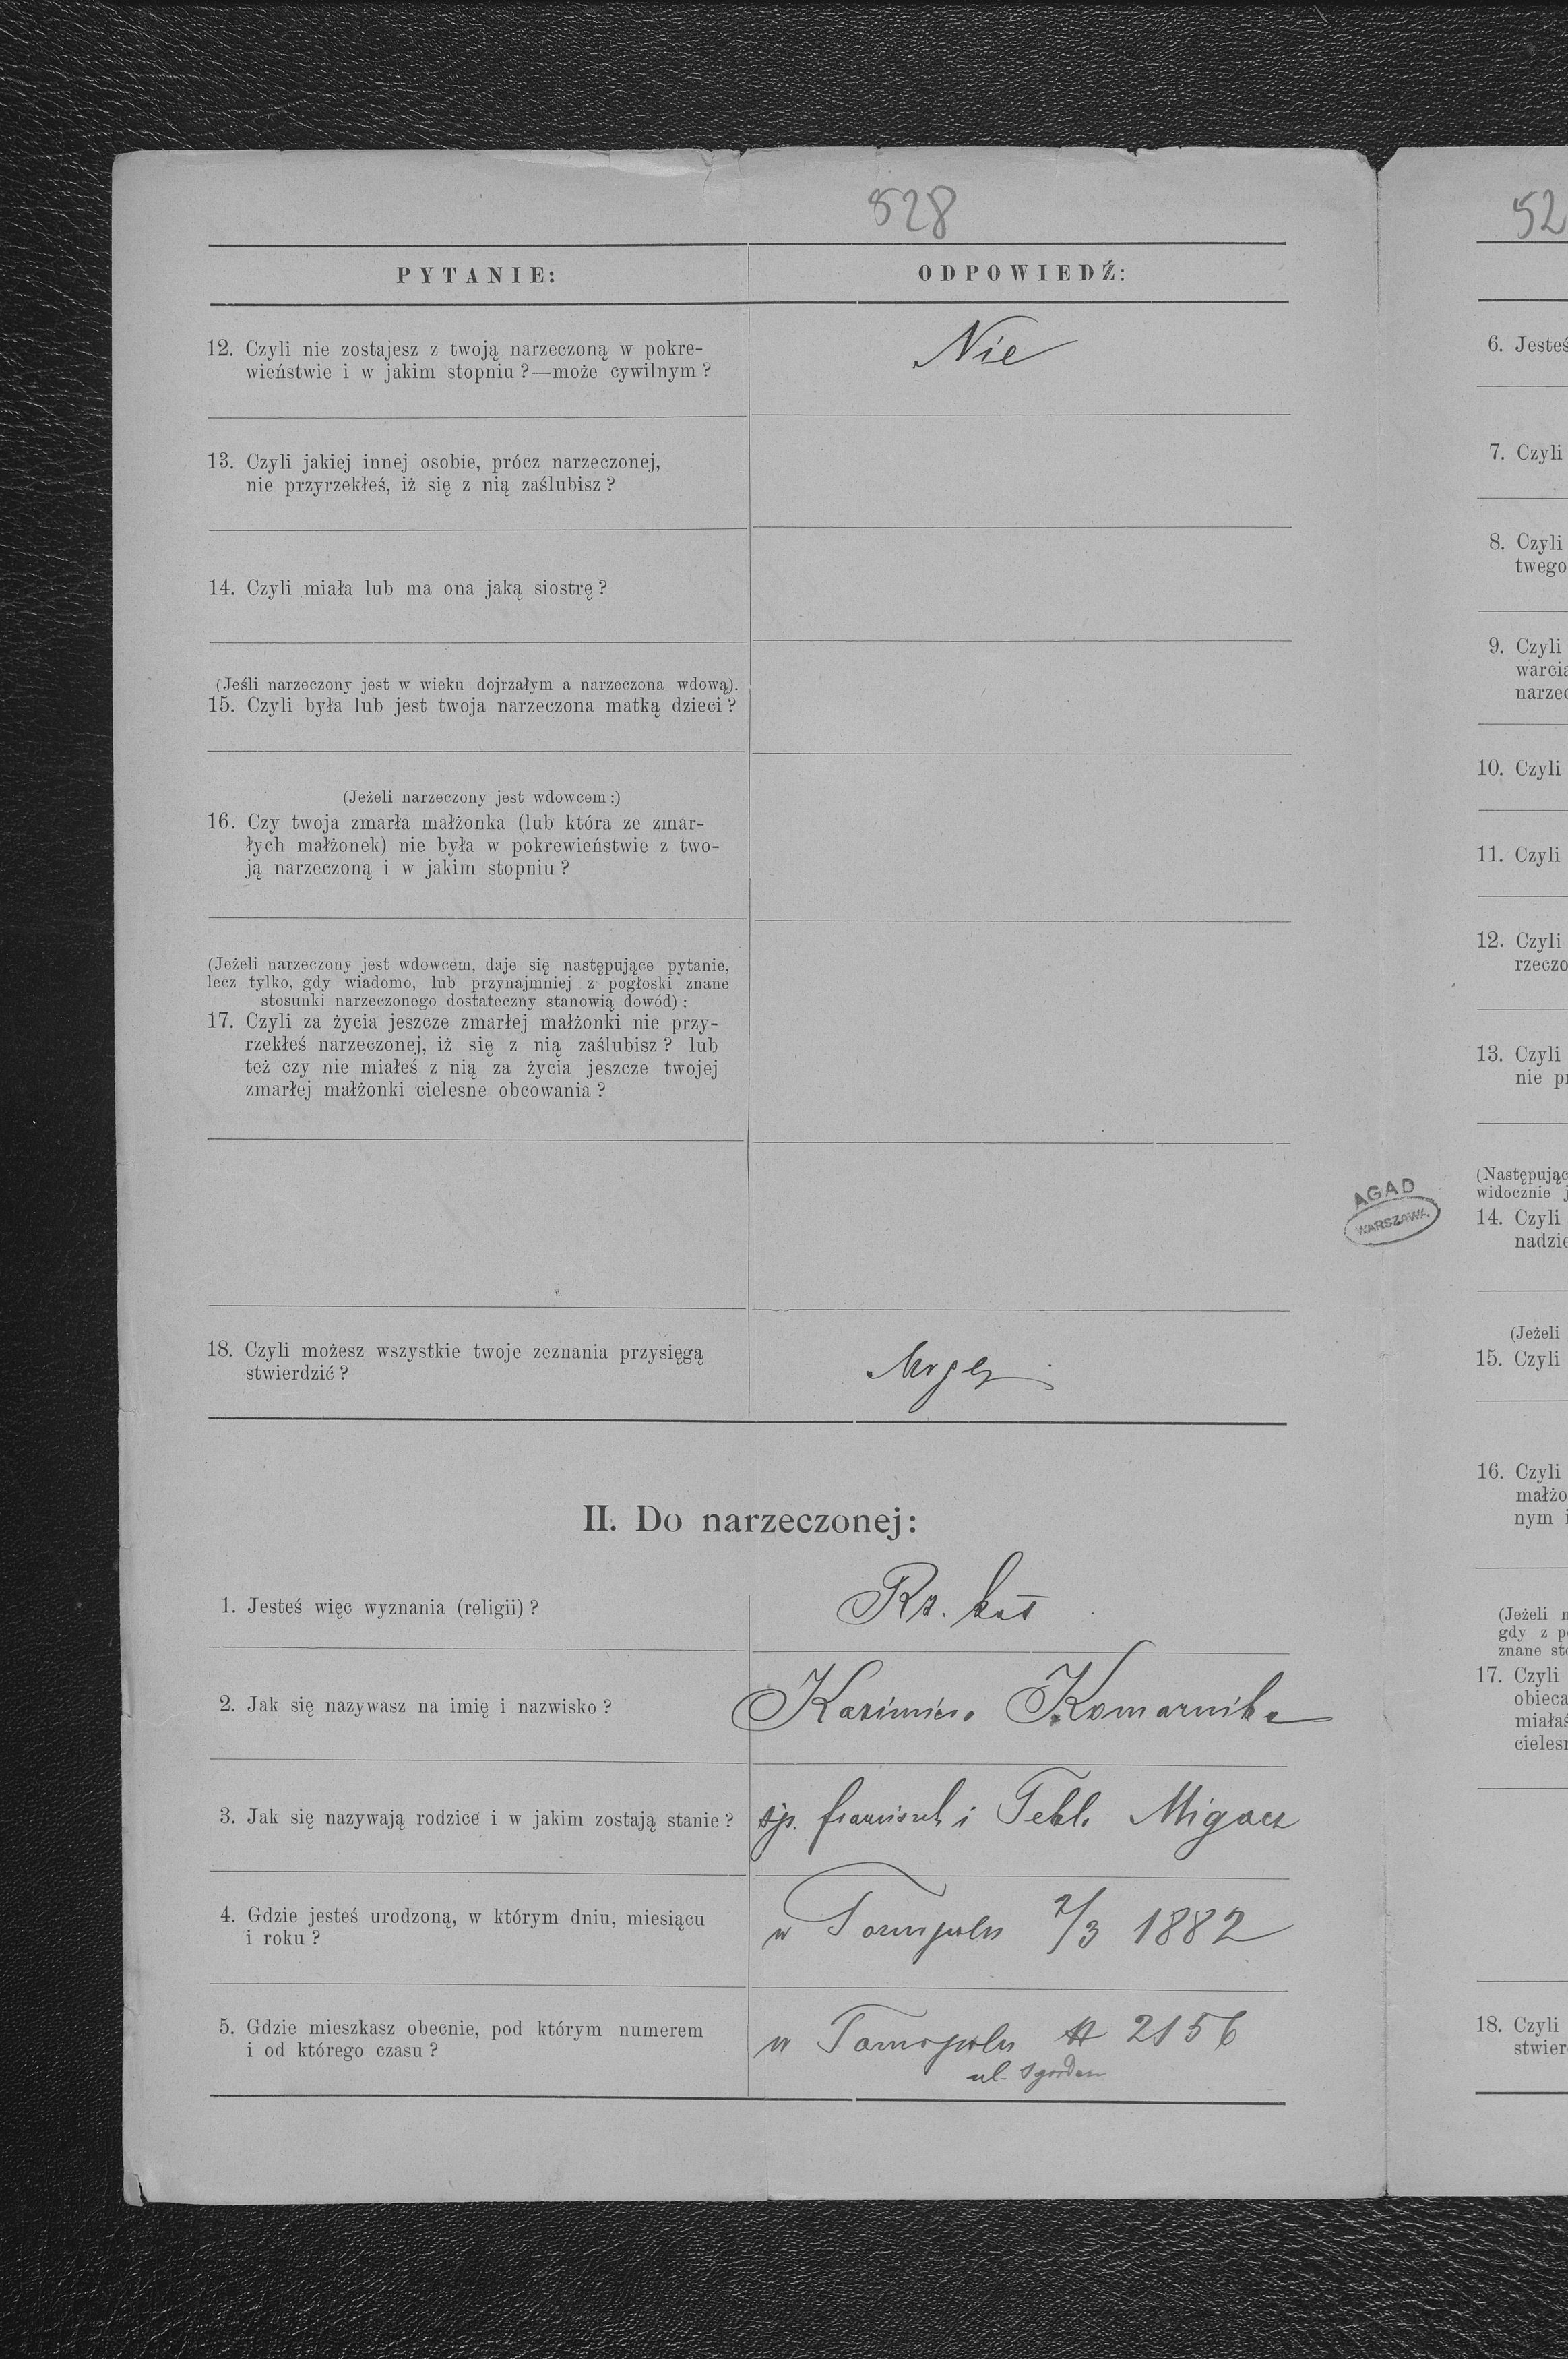 528
PYTANIE:
ODPOWIEDŹ:
12. Czyli nie zostajesz z twoją narzeczoną w pokre-
wieństwie i w jakim stopniu ?—może cywilnym ?
Nie
13. Czyli jakiej innej osobie, prócz narzeczonej,
nie przyrzekłeś, iż się z nią zaślubisz ?
14. Czyli miała lub ma ona jaką siostrę ?
(Jeśli narzeczony jest w wieku dojrzałym a narzeczona wdową).
15. Czyli była lub jest twoja narzeczona matką dzieci ?
(Jeżeli narzeczony jest wdowcem :)
16. Czy twoja zmarła małżonka (lub która ze zmar-
łych małżonek) nie była w pokrewieństwie z two-
ją narzeczoną i w jakim stopniu ?
(Jeżeli narzeczony jest wdowcem, daje się następujące pytanie,
lecz tylko, gdy wiadomo, lub przynajmniej z pogłoski znane
stosunki narzeczonego dostateczny stanowią dowód) :
17. Czyli za życia jeszcze zmarłej małżonki nie przy-
rzekłeś narzeczonej, iż się z nią zaślubisz ? lub
też czy nie miałeś z nią za życia jeszcze twojej
zmarłej małżonki cielesne obcowania ?
18. Czyli możesz wszystkie twoje zeznania przysięgą
stwierdzić ?
II. Do narzeczonej:
1. Jesteś więc wyznania (religii) ?
Rz. kat
2. Jak się nazywasz na imię i nazwisko ?
Kazimiera Komarnika
3. Jak się nazywają rodzice i w jakim zostają stanie ?
śp. i Tekla Migacz
4. Gdzie jesteś urodzoną, w którym dniu, miesiącu
i roku ?
w Tarnopolu 2/3 1882
5. Gdzie mieszkasz obecnie, pod którym numerem
i od którego czasu ?
w Tarnopolu 2156
ul.
AGAD
WARSZAWA
52
6. Jesteś
7. Czyli
8. Czyli
twego
9. Czyli
warcia
narzec
10. Czyli
11. Czyli
12. Czyli
rzeczo
13. Czyli
nie pr
(Następując
widocznie j
14. Czyli
nadzie
(Jeżeli
15. Czyli
16. Czyli
małżo
nym i
(Jeżeli n
gdy z p
znane sto
17. Czyli
obieca
miałaś
cielesn
18. Czyli
stwier